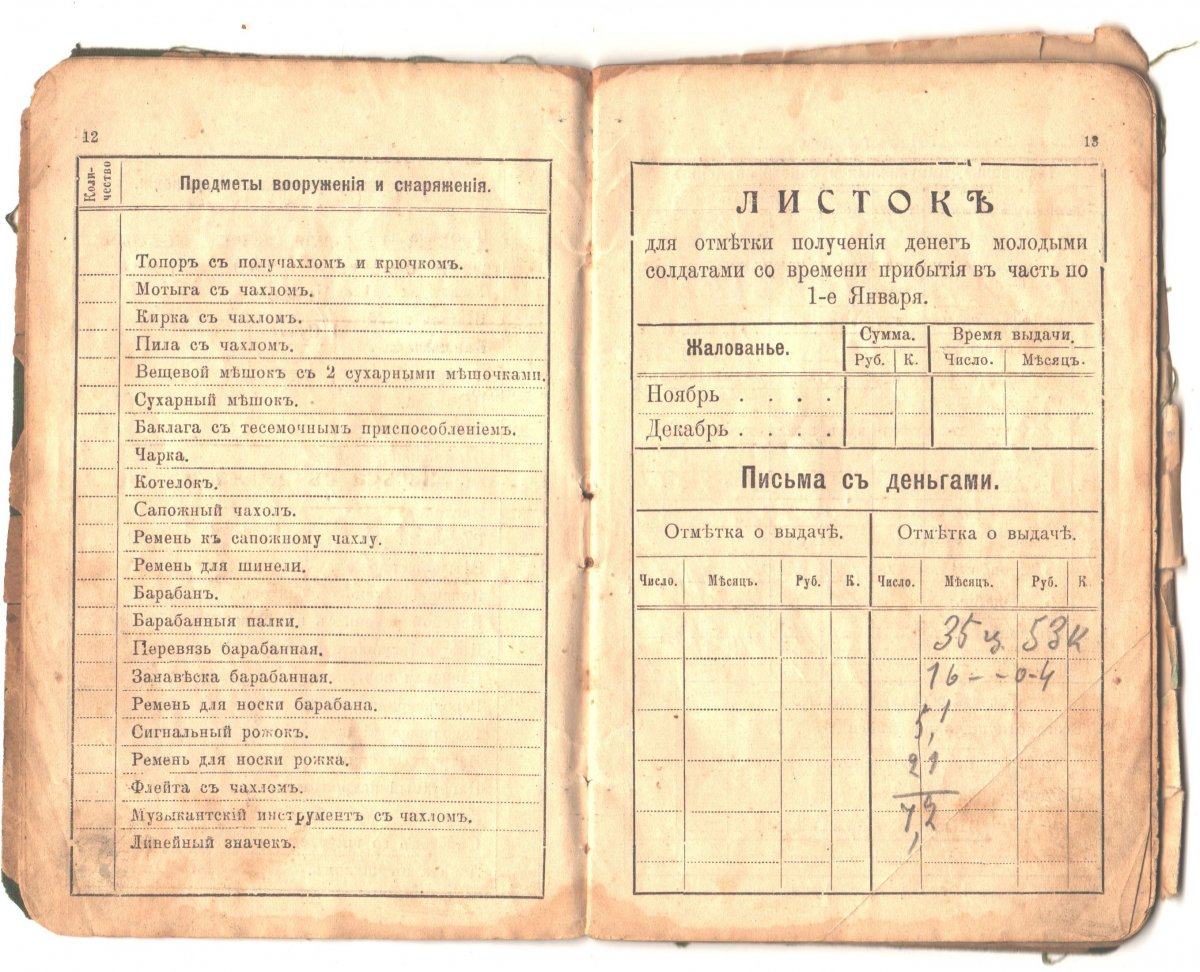 12
Коли-
чество
Предметы вооруженія и снаряженія.
Топоръ съ получахломъ и крючкомъ.
Мотыга съ чахломъ.
Кирка съ чахломъ.
Пила съ чахломъ.
Вещевой мѣшокъ съ 2 сухарными мѣшочками.
Сухарный мѣшокъ.
Баклага съ тесемочнымъ приспособленіемъ.
Чарка.
Котелокъ.
Сапожный чахолъ.
Ремень къ сапожному чахлу.
Ремень для шинели.
Барабанъ.
Барабанныя палки.
Перевязь барабанная.
Занавѣска барабанная.
Ремень для носки барабана.
Сигнальный рожокъ.
Ремень для носки рожка.
Флейта съ чахломъ.
Музыкантскій инструментъ съ чахломъ.
Линейный значекъ.
13
ЛИСТОКЪ
для отмѣтки полученія денегъ молодыми
солдатами со времени прибытія въ часть по
1-е Января.
Жалованье. Сумма. Время выдачи.
Руб. К. Число. Мѣсяцъ.
Ноябрь . . . .
Декабрь . . . .
Письма съ деньгами.
Отмѣтка о выдачѣ. Отмѣтка о выдачѣ.
Число. Мѣсяцъ. Руб. К. Число. Мѣсяцъ. Руб. К
35 ц 53 к
16 - - 0-4
5,1
21
7,2